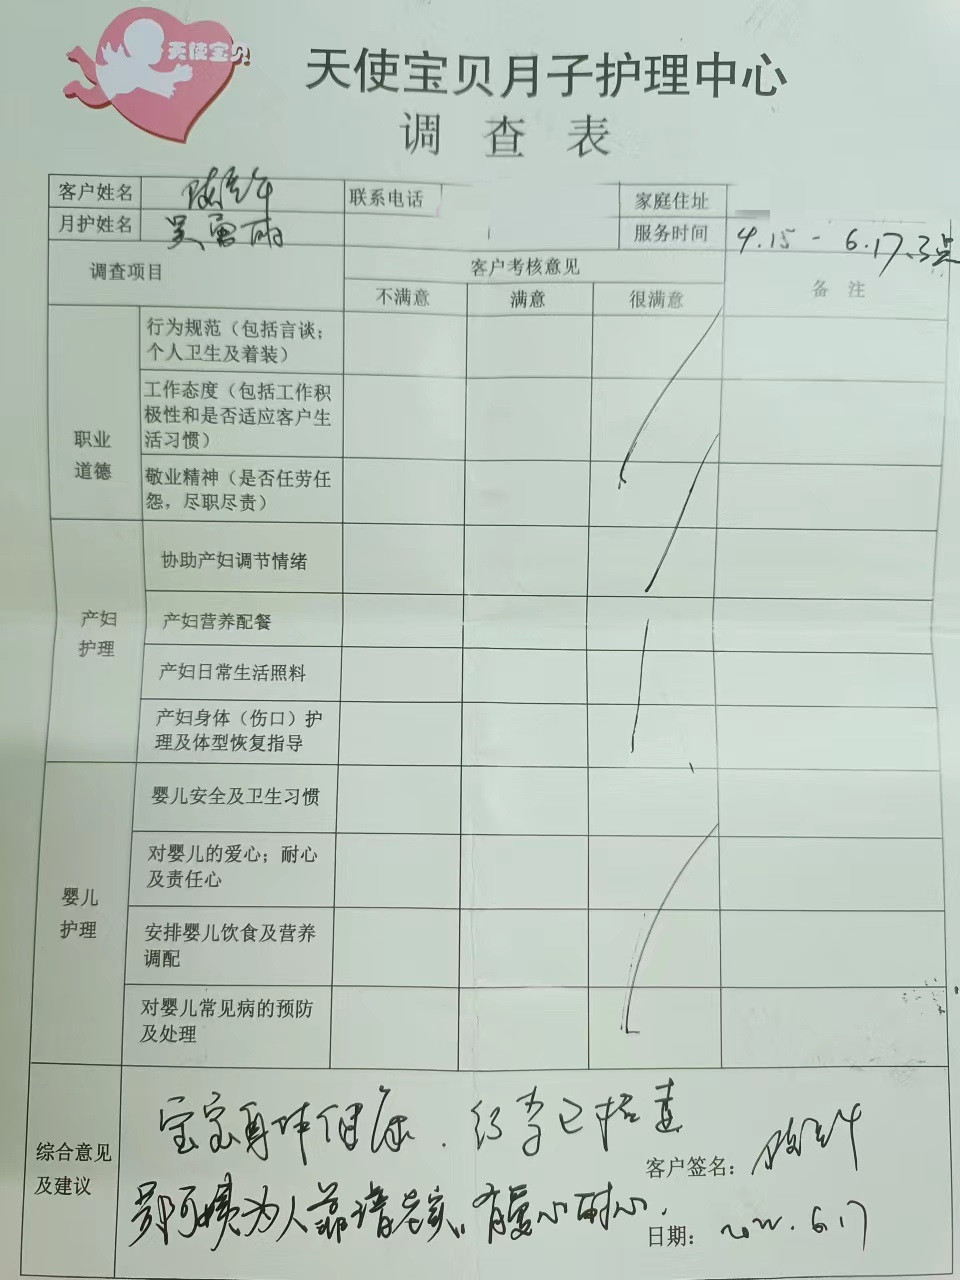 天使宝贝
天使宝贝月子护理中心
调 查 表
客户姓名
联系电话
家庭住址
月护姓名 吴雪雨
服务时间 4.15 - 6.17.3点
调查项目
客户考核意见
备 注
不满意 满意 很满意
职业
道德
行为规范（包括言谈；
个人卫生及着装）
工作态度（包括工作积
极性和是否适应客户生
活习惯）
敬业精神（是否任劳任
怨，尽职尽责）
产妇
护理
协助产妇调节情绪
产妇营养配餐
产妇日常生活照料
产妇身体（伤口）护
理及体型恢复指导
婴儿
护理
婴儿安全及卫生习惯
对婴儿的爱心；耐心
及责任心
安排婴儿饮食及营养
调配
对婴儿常见病的预防
及处理
综合意见
及建议
宝宝身体健康．行李已检查
客户签名：
阿姨为人靠谱老实、有爱心耐心．
日期： 2022.6.17